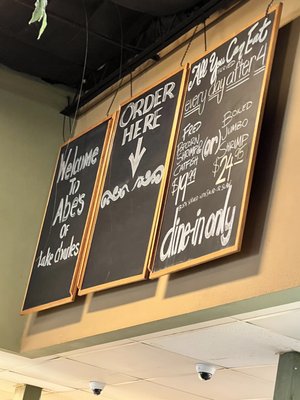 Welcome
To
Abe's
of
Lake Charles
ORDER
HERE
All You Can Eat
every day after 4
Fried
Popcorn
Shrimp or
Catfish
$19.49
(or)
Boiled
Jumbo
Shrimp
$24.49
dine-in only